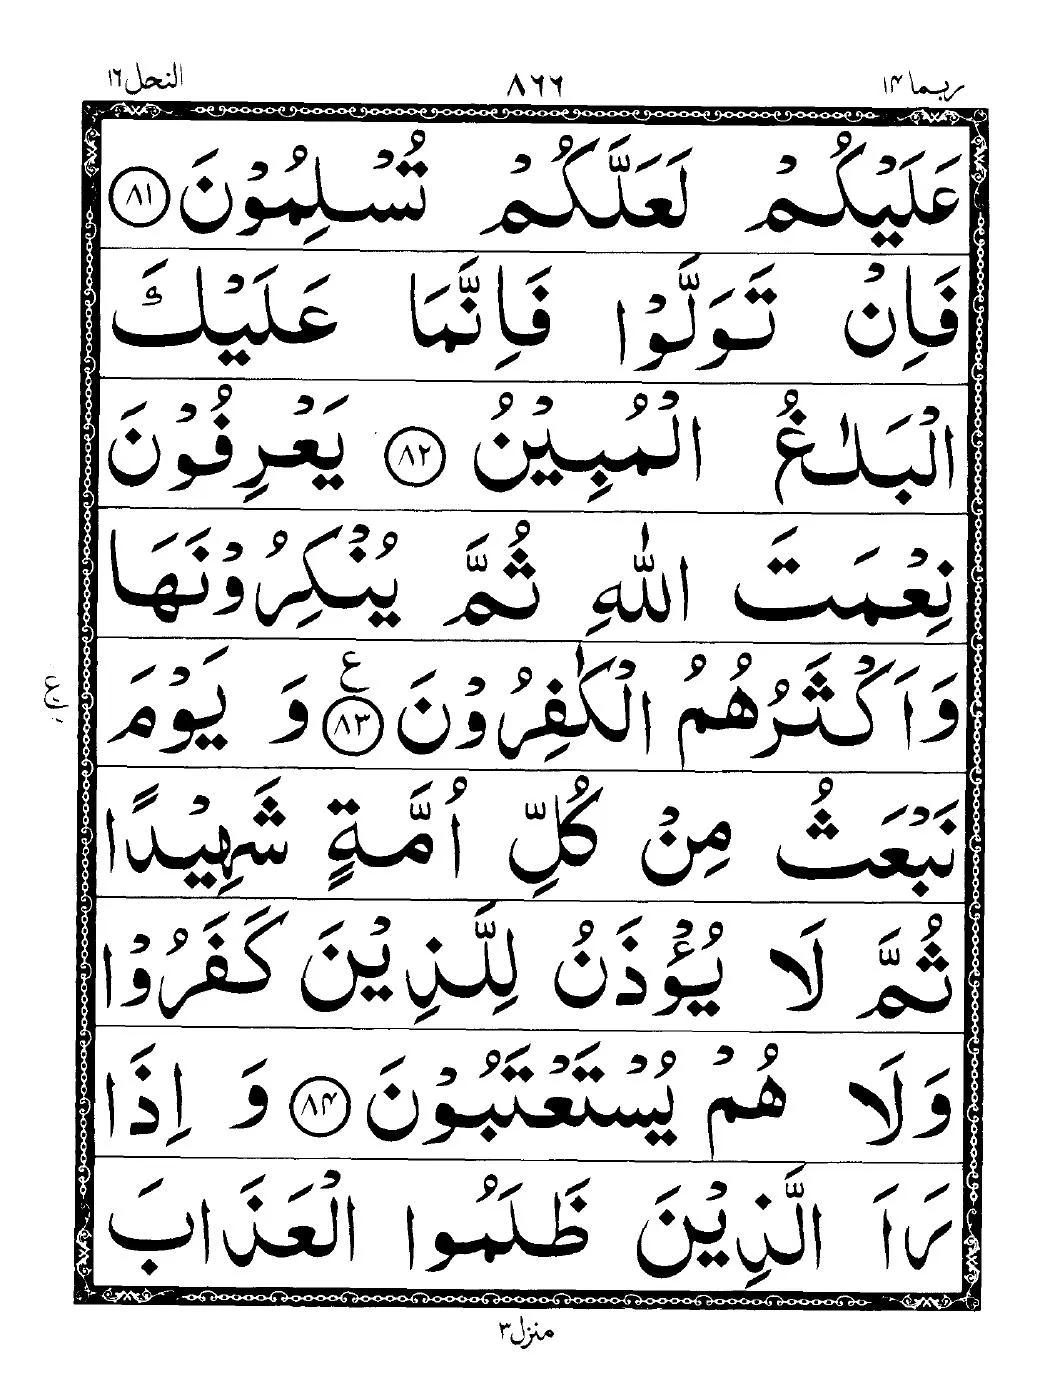 ربما ۱۴ ۸۶۶ النحل ۱۶
عَلَيْكُمْ لَعَلَّكُمْ تُسْلِمُوْنَ ﴿۸۱﴾
فَاِنْ تَوَلَّوْا فَاِنَّمَا عَلَيْكَ
الْبَلٰغُ الْمُبِيْنُ ﴿۸۲﴾ يَعْرِفُوْنَ
نِعْمَتَ اللّٰهِ ثُمَّ يُنْكِرُوْنَهَا
وَاَكْثَرُهُمُ الْكٰفِرُوْنَ ﴿۸۳﴾ ع وَ يَوْمَ
نَبْعَثُ مِنْ كُلِّ اُمَّةٍ شَهِيْدًا
ثُمَّ لَا يُؤْذَنُ لِلَّذِيْنَ كَفَرُوْا
وَلَا هُمْ يُسْتَعْتَبُوْنَ ﴿۸۴﴾ وَ اِذَا
رَاَ الَّذِيْنَ ظَلَمُوا الْعَذَابَ
منزل ۳